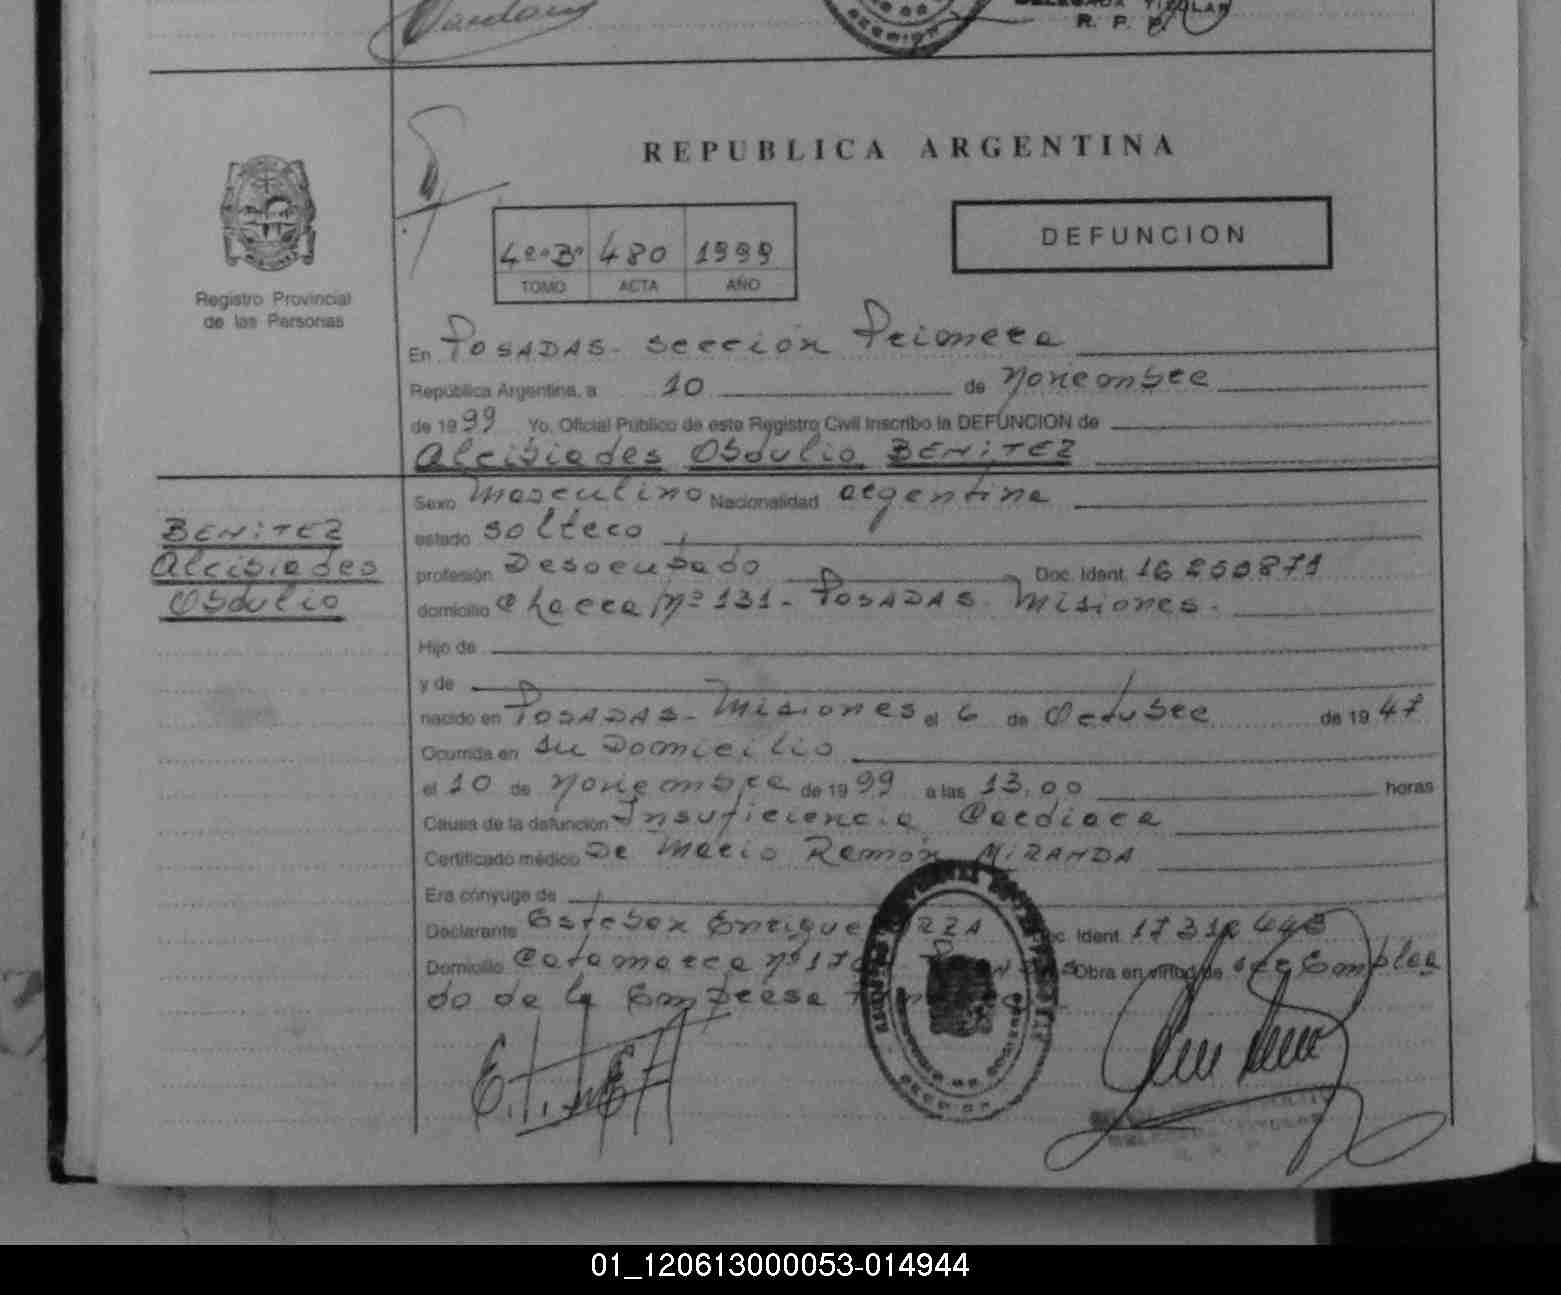 DELEGADA TITULAR
R. P. P.
REPUBLICA ARGENTINA
Registro Provincial
de las Personas
4º Bº 480 1999
TOMO ACTA AÑO
DEFUNCION
En POSADAS - sección Primera
República Argentina, a 10 de Noviembre
de 1999 Yo, Oficial Público de este Registro Civil inscribo la DEFUNCION de
Alcibiades Obdulio BENITEZ
Sexo Masculino Nacionalidad argentina
BENITEZ
Alcibiades
Obdulio
estado soltero
profesión Desocupado Doc. Ident.
domicilio Chacra Nº 131 - POSADAS - Misiones.
Hijo de
y de
nacido en POSADAS - Misiones el 6 de Octubre de 1947
Ocurrida en su Domicilio
el 10 de Noviembre de 1999 a las 13.00 horas
Causa de la defunción Insuficiencia Cardiaca
Certificado médico Dr Mario Ramón MIRANDA
Era cónyuge de
Declarante Esteban Enrique Doc. Ident.
Domicilio Catamarca Nº Obra en virtud de ser Emplea
do de la Empresa
01_120613000053-014944